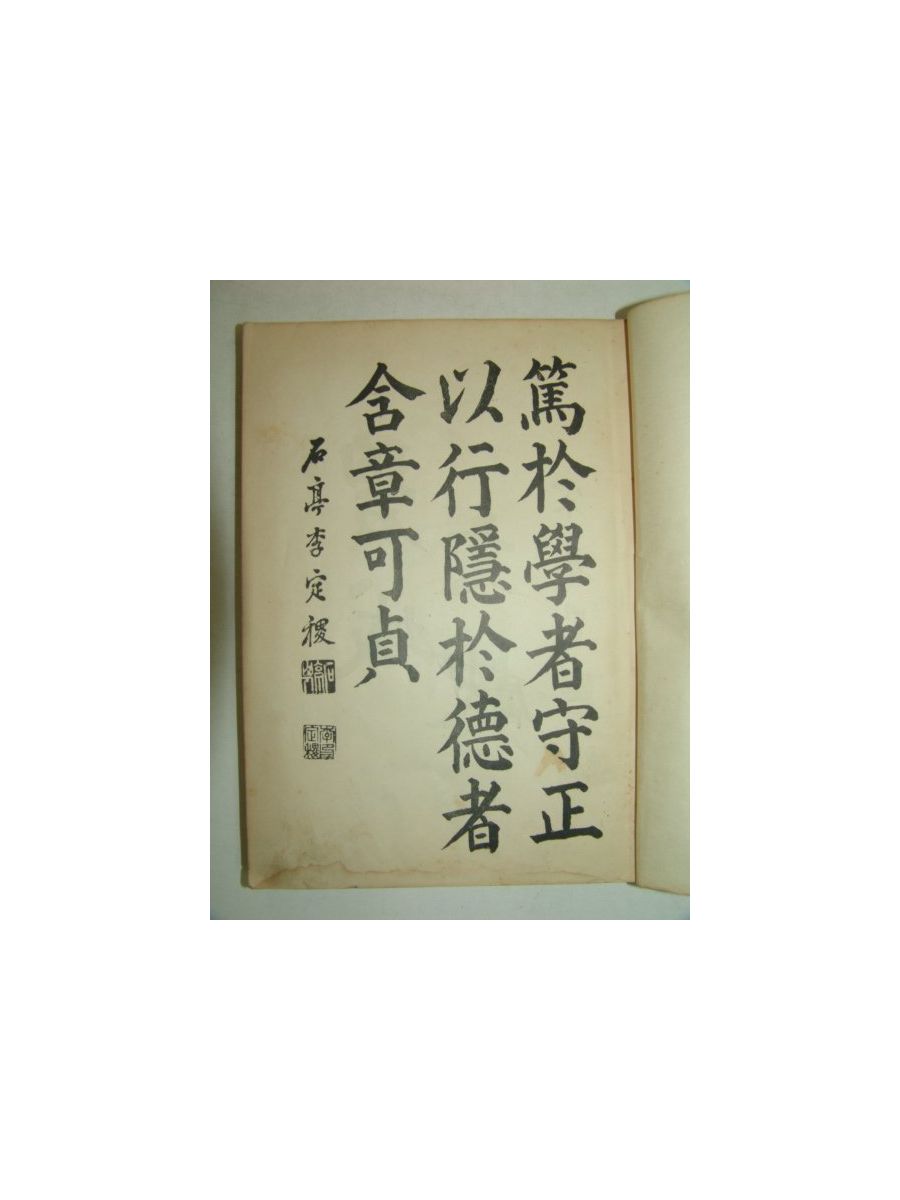 篤於學者守正
以行隱於德者
含章可貞
石亭李定稷